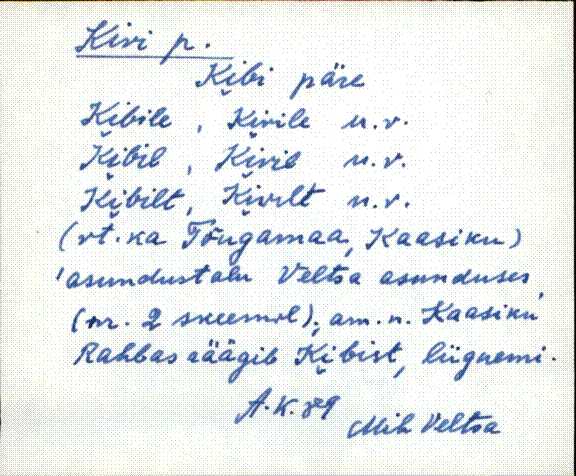 Kivi p.
Ki̬bi päre
Ki̬bile, Ki̬vile u.v.
Ki̬bil, Ki̬vil u.v.
Ki̬bilt, Ki̬vilt u.v.
(vt. ka Tõugamaa, Kaasiku)
'asundustalu Veltsa asunduses,
(nr. 2 skeemil), am. n. Kaasiku
Rahbas räägib Ki̬bist, liignemi.
A.K. 89
Mih Veltsa